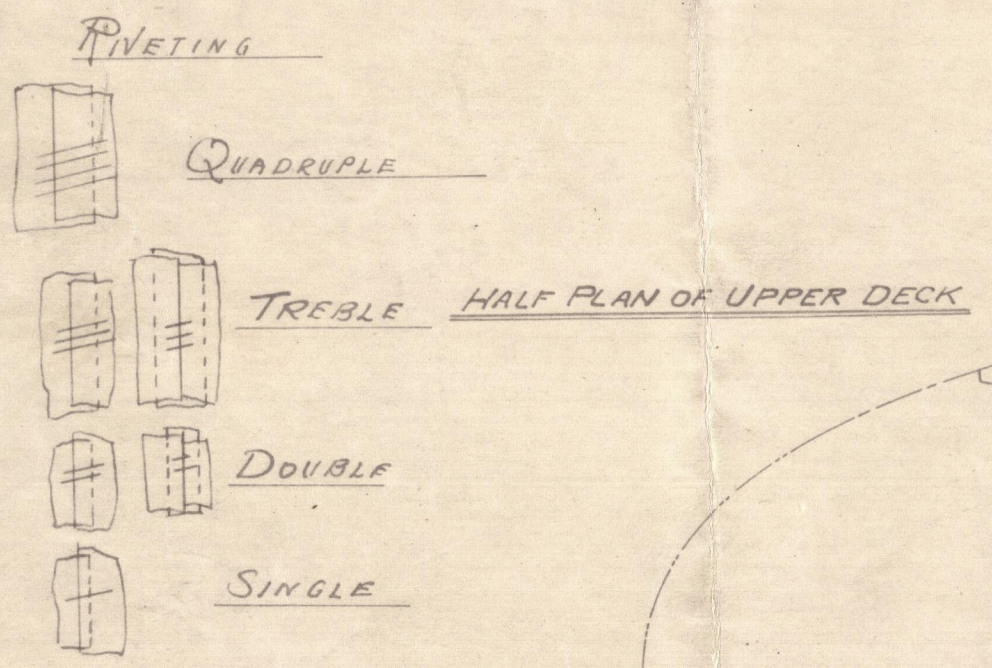 RIVETING
QUADRUPLE
TREBLE
HALF PLAN OF UPPER DECK
DOUBLE
SINGLE